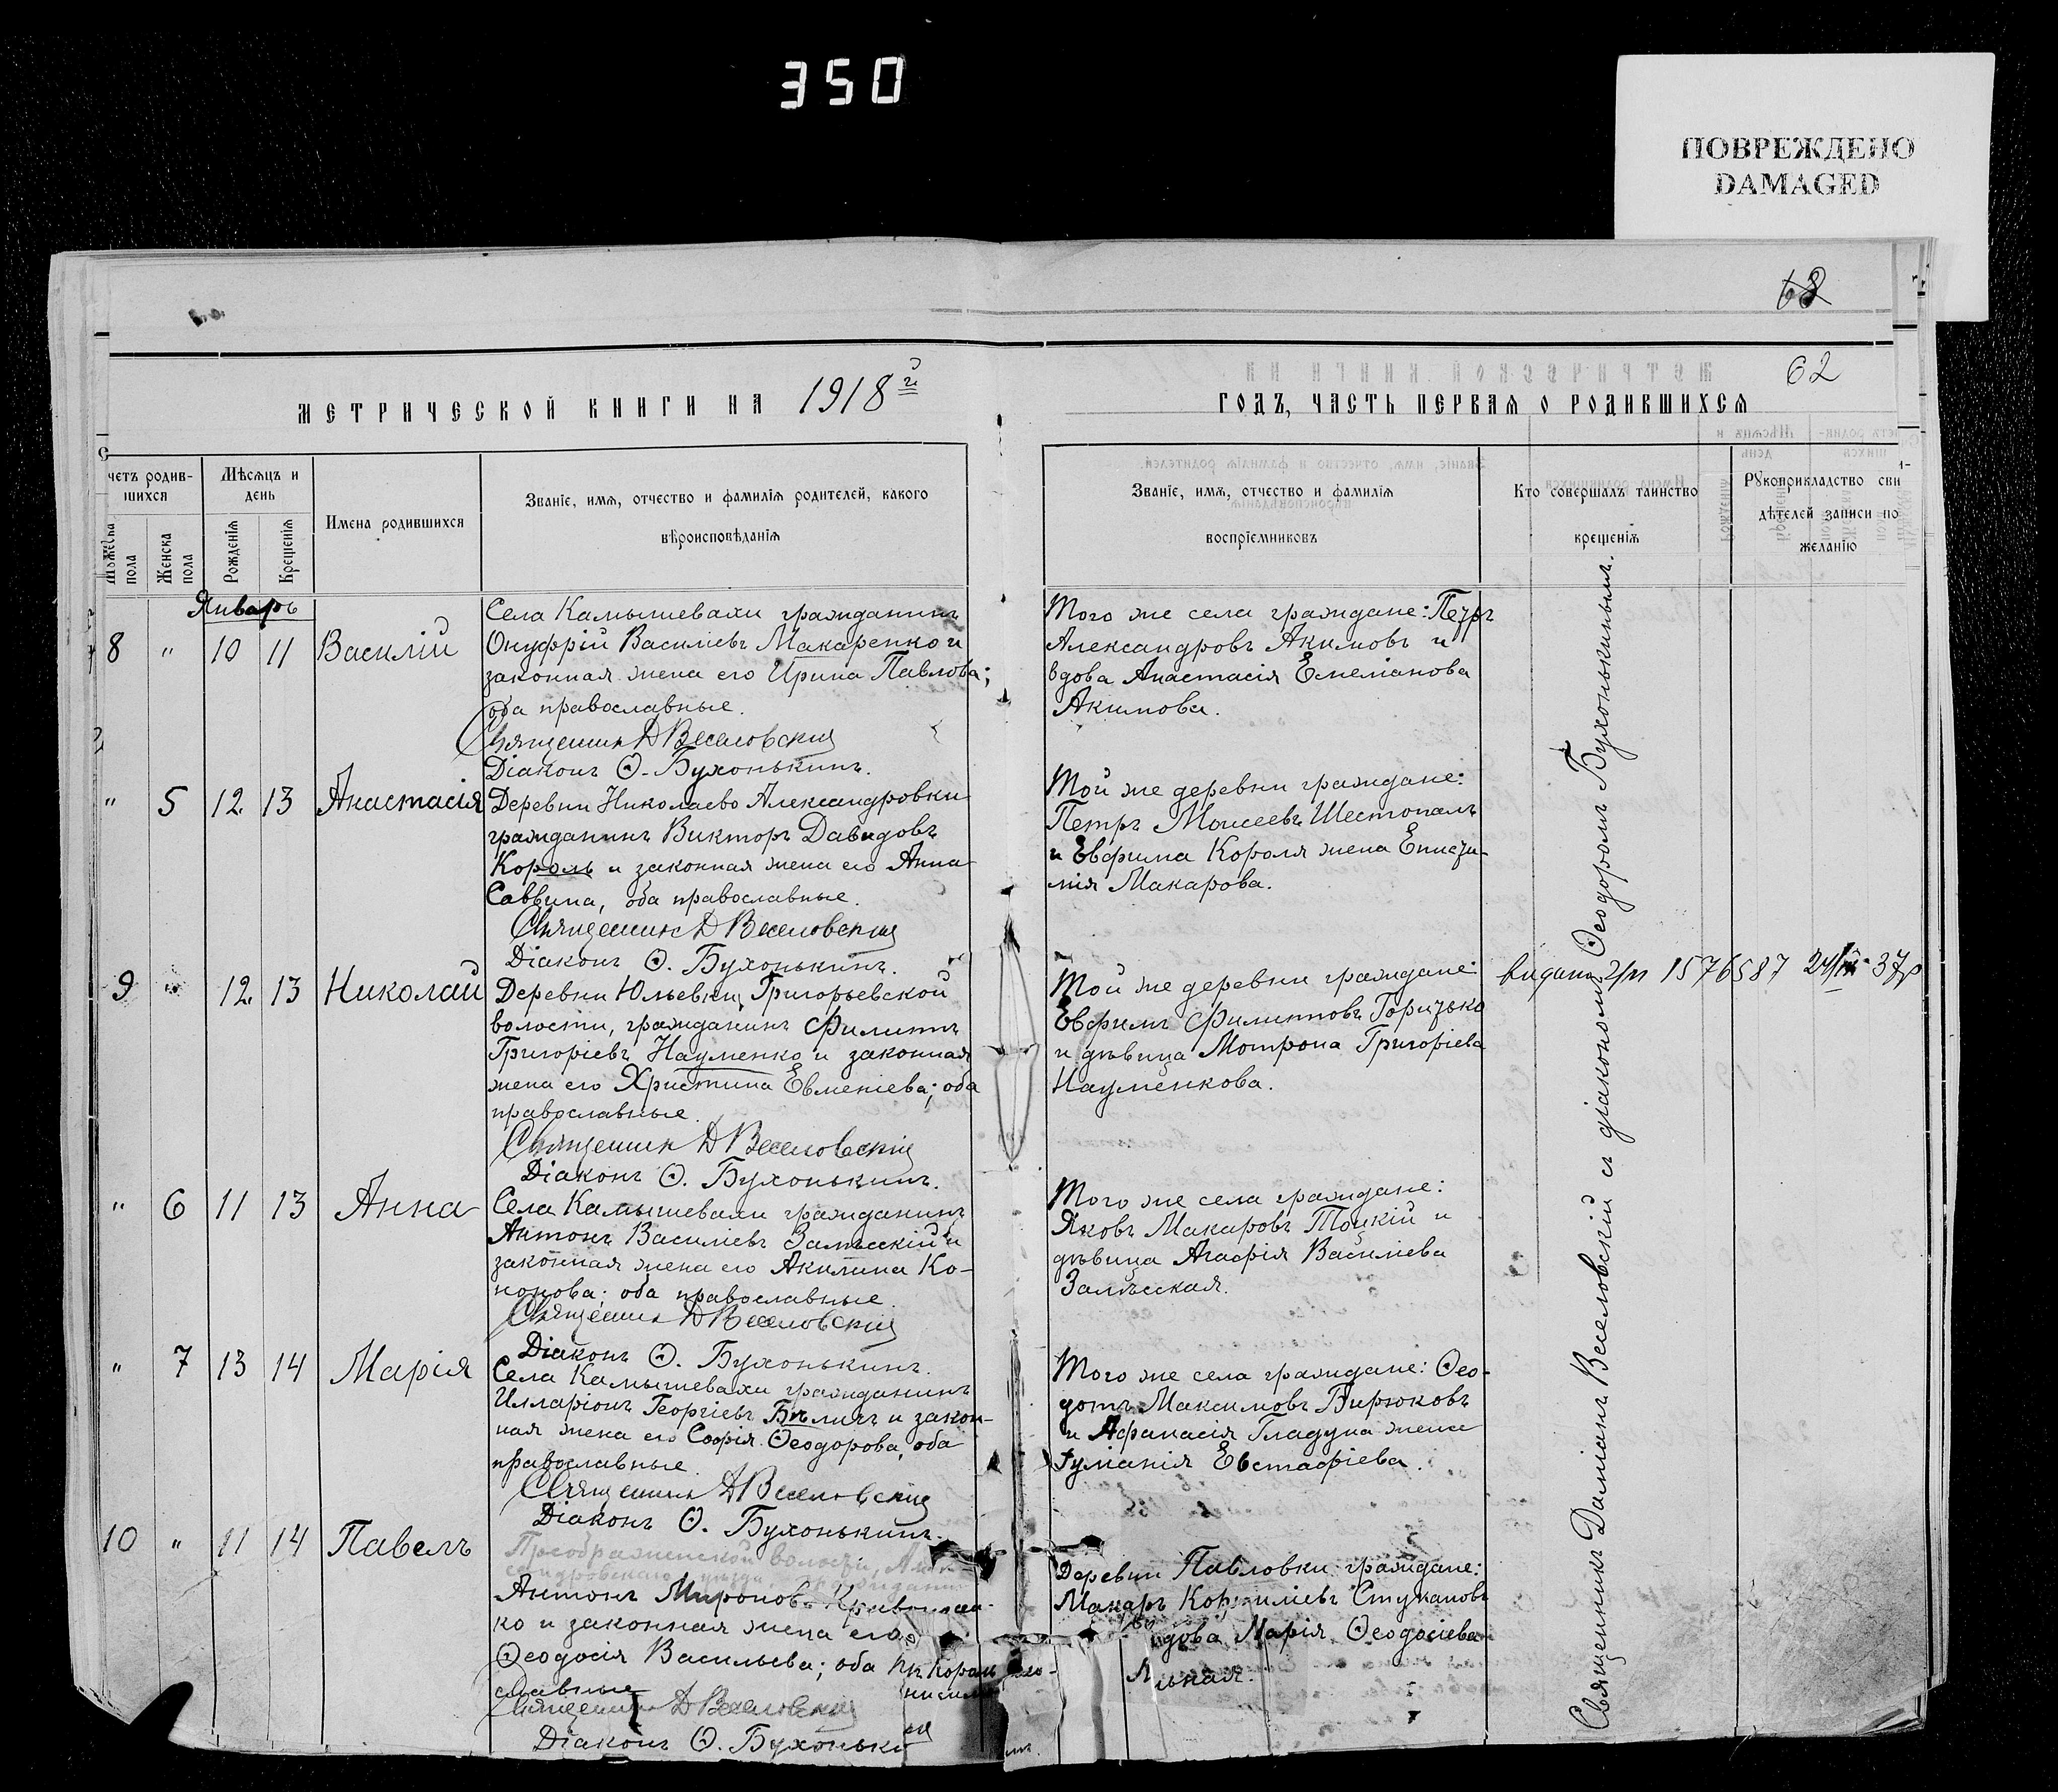 350
ПОВРЕЖДЕНО
DAMAGED
62
МЕТРИЧЕСКОЙ КНИГИ НА 1918 й
ГОДЪ, ЧАСТЬ ПЕРВАЯ О РОДИВШИХСЯ
Счетъ родив-
шихся
Мужеска пола
Женска пола
Мѣсяцъ и
день
Рожденія
Крещенія
Имена родившихся
Званіе, имя, отчество и фамилія родителей, какого
вѣроисповѣданія
Званіе, имя, отчество и фамилія
воспріемниковъ
Кто совершалъ таинство
крещенія
Рукоприкладство сви
дѣтелей записи по
желанію
Январь
8 " 10 11 Василій
Села Камышевахи гражданинъ
Онуфрій Василіевъ Макаренко и
законная жена его Ирина Павлова;
оба православные.
Священник Д Веселовский
Діаконъ Ѳ. Бухонькинъ.
Того же села граждане: Петръ
Александровъ Акимовъ и
вдова Анастасія Емеліанова
Акимова.
" 5 12 13 Анастасія
Деревни Николаево Александровки
гражданинъ Викторъ Давидовъ
Король и законная жена его Анна
Саввина, оба православные.
Священник Д Веселовский
Діаконъ Ѳ. Бухонькинъ.
Той же деревни граждане:
Петръ Моисеевъ Шестопалъ
и Евфима Короля жена
Макарова.
9 " 12 13 Николай
Деревни Юльевки, Григорьевской
волости, гражданинъ Филиппъ
Григоріевъ Науменко и законная
жена его Христина Евменіева; оба
православные.
Священник Д Веселовский
Діаконъ Ѳ. Бухонькинъ.
Той же деревни граждане:
Евфимъ Филипповъ
и дѣвица Мотрона Григоріева
Науменкова.
1576587 37
" 6 11 13 Анна
Села Камышевахи гражданинъ
Антонъ Василіевъ Залѣсскій и
законная жена его Акилина Ко-
нонова; оба православные.
Священник Д Веселовский
Діаконъ Ѳ. Бухонькинъ.
Того же села граждане:
Яковъ Макаровъ Тоцкій и
дѣвица Агафія Василіева
Залѣсская.
" 7 13 14 Марія
Села Камышевахи гражданинъ
Илларіонъ Георгіевъ Бѣличъ и закон-
ная жена его Софія Ѳеодорова, оба
православные.
Священник Д Веселовский
Діаконъ Ѳ. Бухонькинъ.
Того же села граждане: Ѳео-
дотъ Максимовъ Бирюковъ
и Афанасія Гладуна жена
Евстафіева.
10 " 11 14 Павелъ
Преображенской волости,
Антонъ Мироновъ
ко и законная жена его
Ѳеодосія Васильева; оба
славные
Священник Д Веселовский
Діаконъ Ѳ. Бухоньки
Деревни Павловки граждане:
Макаръ Стукановъ
вдова Марія Ѳеодосіева
Священникъ Даміанъ Веселовскій съ діакономъ Ѳеодоромъ Бухонькинымъ.